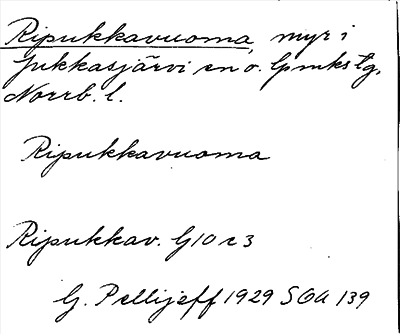 Ripukkavuoma, myr i
Jukkasjärvi sn o. lpmks tg,
Norrb. l.
Ripukkavuoma
Ripukkav. G10 c3
G. Pellijeff 1929 SOA 139